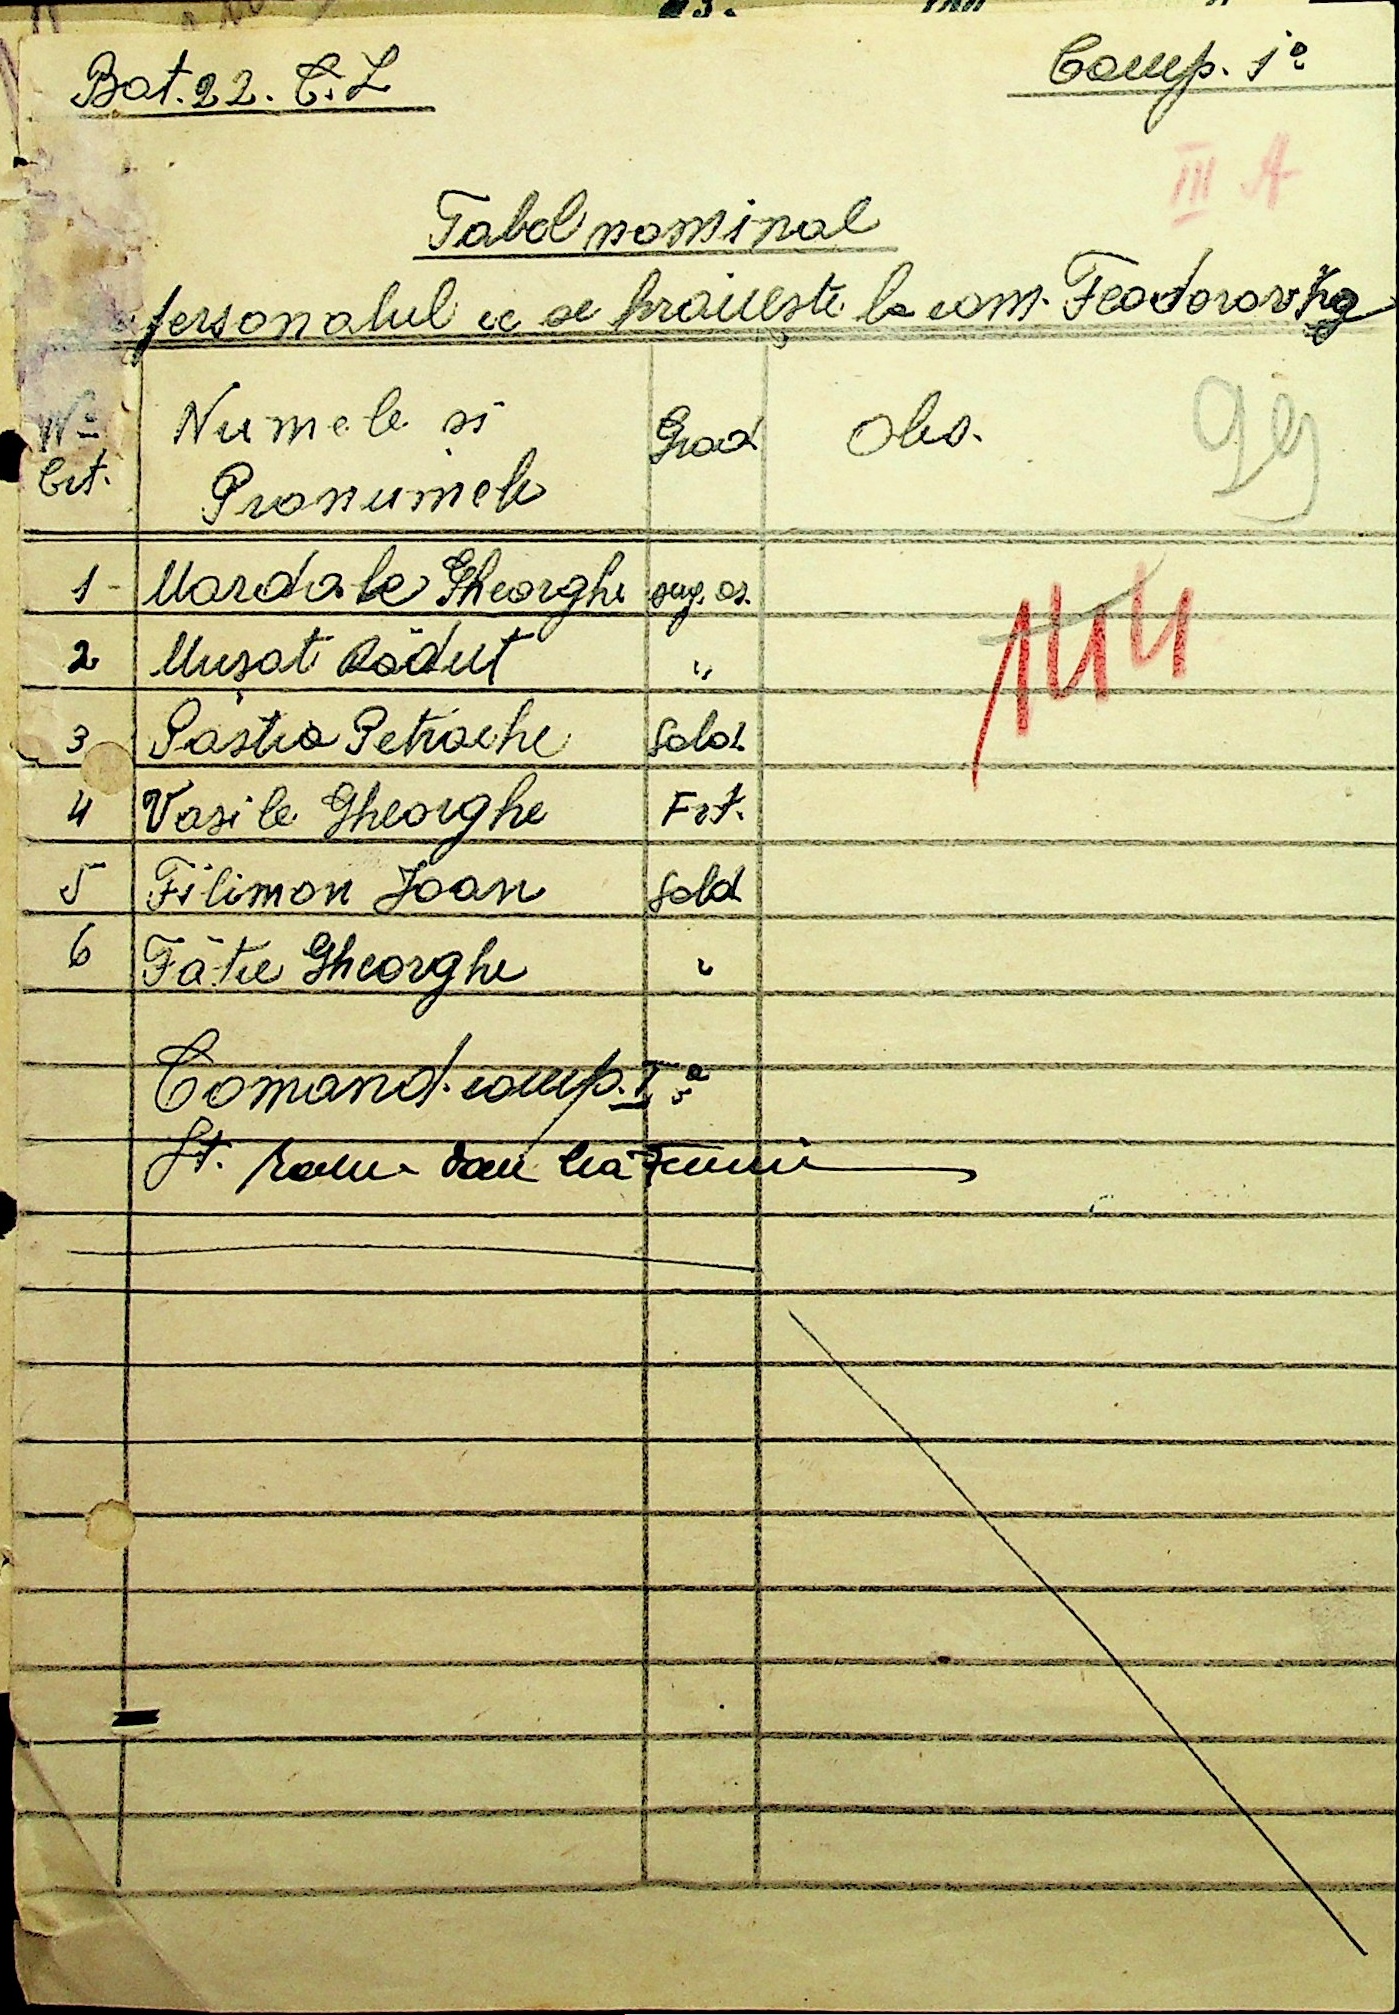 Bat. 22. C. L
Comp. 1ª
III A
Tabel nominal
personalul ce se hrănește la com. Feodorovka
No Numele si Grad Obs. 99
Crt. Pronumele
1 - Mardale Gheorghe
2 Musat Răduț "
3 Pastra Petrache Sold.
4 Vasile Gheorghe Frt.
5 Filimon Ioan Sold
6 Fătu Gheorghe "
144
Comand. comp. Iª